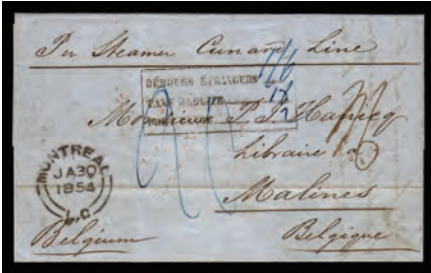 Per Steamer Cunard Line
DÉBOURS ÉTRANGERS
TAXE RÉDUITE
Monsieur P. J. Hanicq
Libraire à
Malines
MONTREAL
JA30
1854
L.C
Belgium
Belgique